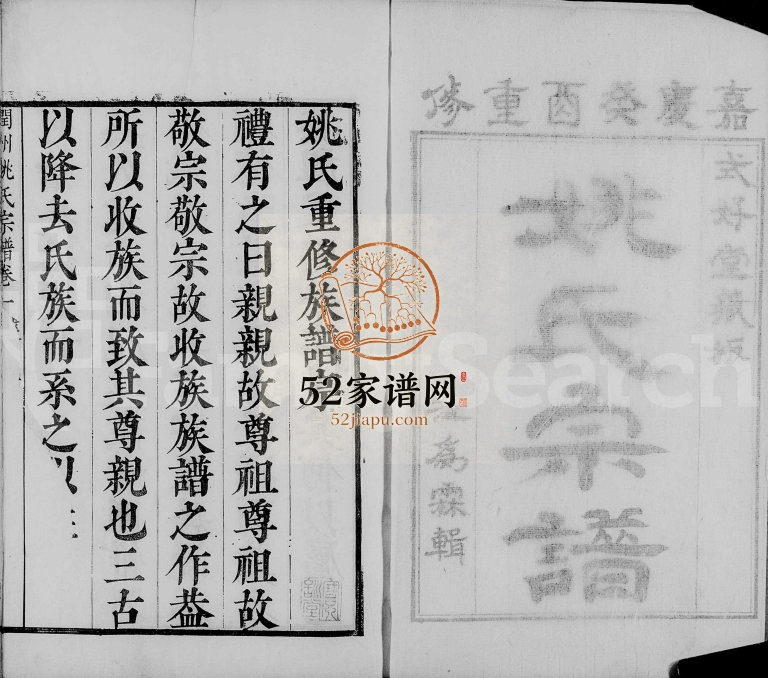 嘉慶癸酉重修
姚氏宗譜
為霖輯
姚氏重修族譜序
禮有之曰親親故尊祖尊祖故
敬宗敬宗故收族族譜之作葢
所以收族而致其尊親也三古
以降去氏族而系之以
潤州姚氏宗譜卷一
52家谱网
52jiapu.com
Search